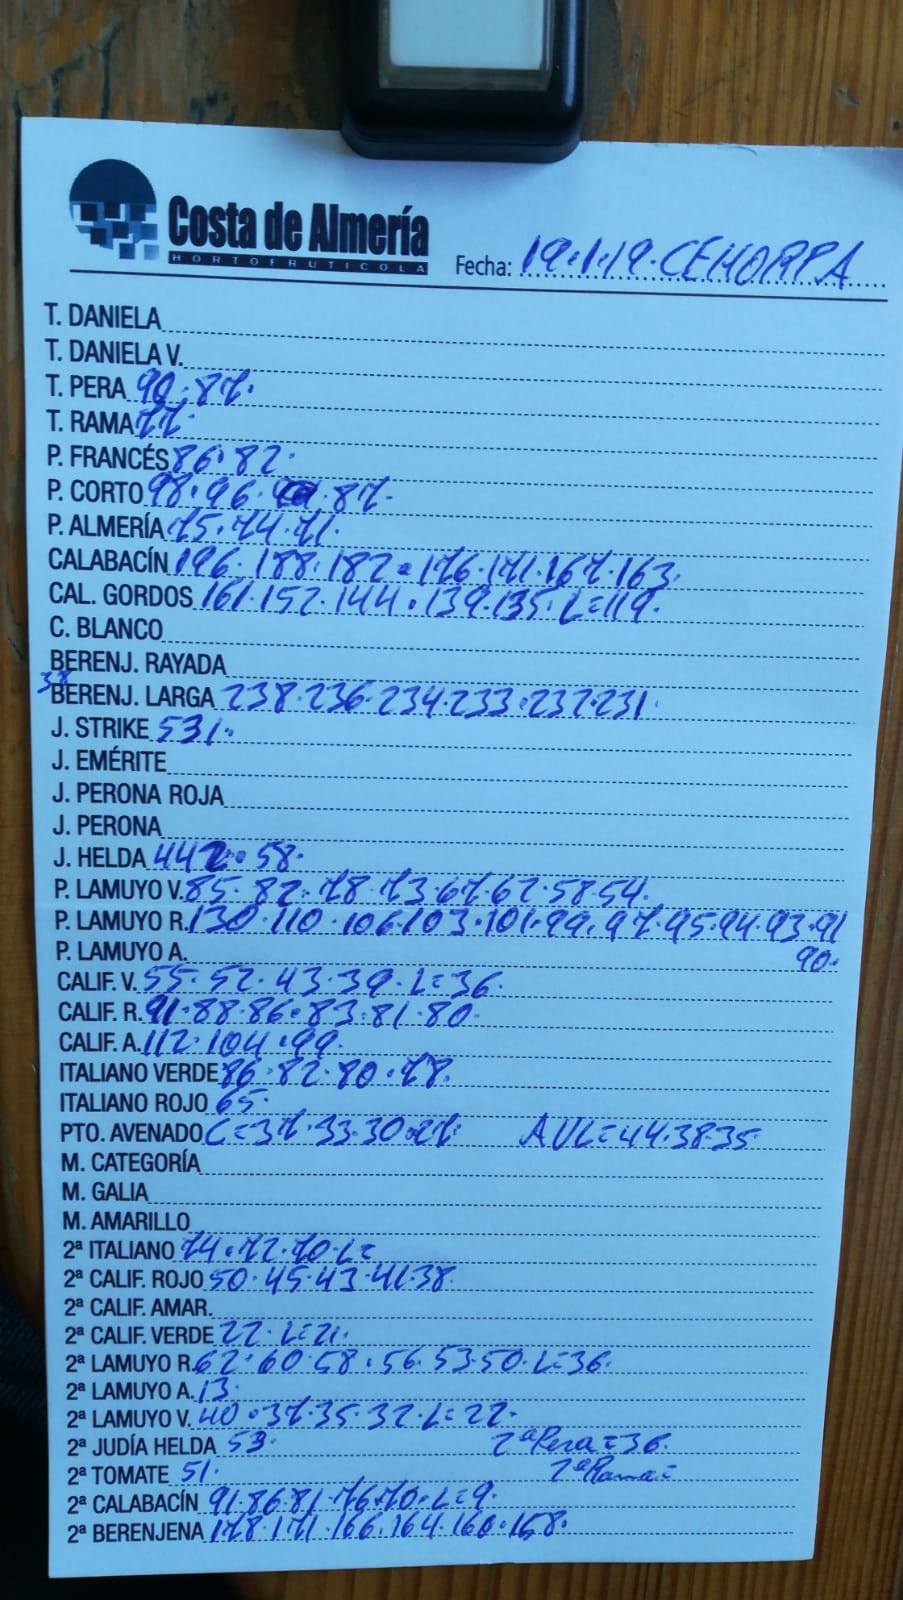 Costa de Almería
HORTOFRUTICOLA
Fecha: 19.1.19.CEHORPA
T. DANIELA
T. DANIELA V.
T. PERA 90.87.
T. RAMA 77.
P. FRANCÉS 86.82.
P. CORTO 98.96. .87.
P. ALMERÍA 75.74.71.
CALABACÍN 196.188.182.176.171.167.163.
CAL. GORDOS 161.152.144.139.135.L=119.
C. BLANCO
BERENJ. RAYADA
38
BERENJ. LARGA 238.236.234.233.232.231.
J. STRIKE 531.
J. EMÉRITE
J. PERONA ROJA
J. PERONA
J. HELDA 442.58.
P. LAMUYO V. 85.82.78.73.67.62.58.54.
P. LAMUYO R. 130.110.106.103.101.99.97.95.94.93.91
P. LAMUYO A. 90.
CALIF. V. 55.52.43.39.L=36.
CALIF. R. 91.88.86.83.81.80.
CALIF. A. 112.104.99.
ITALIANO VERDE 86.82.80.78.
ITALIANO ROJO 65.
PTO. AVENADO C=37.33.30.27. AVL=44.38.35
M. CATEGORÍA
M. GALIA
M. AMARILLO
2ª ITALIANO 74.72.70.L=
2ª CALIF. ROJO 50.45.43.41.38.
2ª CALIF. AMAR.
2ª CALIF. VERDE 22.L=21.
2ª LAMUYO R. 62.60.58.56.53.50.L=36.
2ª LAMUYO A. 13.
2ª LAMUYO V. 40.37.35.32.L=22.
2ª JUDÍA HELDA 53. 2ª Pera=36.
2ª TOMATE 51. 2ª Rama=
2ª CALABACÍN 91.86.81.76.70.L=9.
2ª BERENJENA 178.171.166.164.160.158.